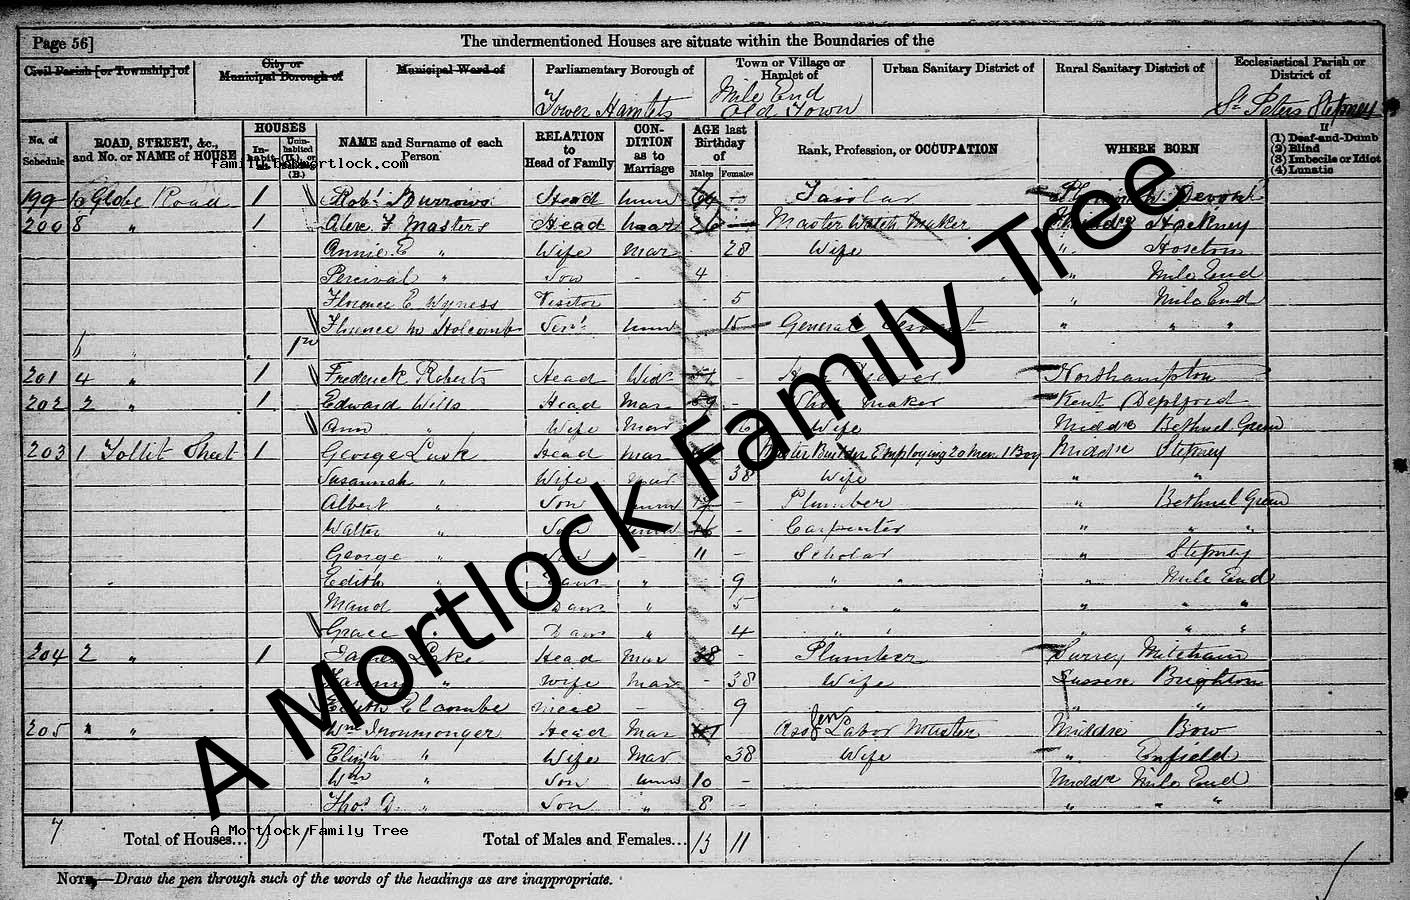 Page 56] The undermentioned Houses are situate within the Boundaries of the
Civil Parish [or Township] of City or Municipal Borough of Municipal Ward of Parliamentary Borough of Town or Village or Hamlet of Urban Sanitary District of Rural Sanitary District of Ecclesiastical Parish or District of
Tower Hamlets Mile End Old Town St Peters Stepney
No. of Schedule ROAD, STREET, &c., and No. or NAME of HOUSE HOUSES In-habited Unin-habited (U.), or Building (B.) NAME and Surname of each Person RELATION to Head of Family CON-DITION as to Marriage AGE last Birthday of Males Females Rank, Profession, or OCCUPATION WHERE BORN If (1) Deaf-and-Dumb (2) Blind (3) Imbecile or Idiot (4) Lunatic
family.beamortlock.com
199 10 Globe Road 1 Robt Burrows Head Unm Tailor Devon
200 8 " 1 Alex F Masters Head Mar 26 Master Watch Maker Middx Hackney
Annie E " Wife Mar 28 Wife " Hoxton
Percival " Son 4 " Mile End
Florence E Wyness Visitor 5 " Mile End
Florence M Holcomb Servt Unm 15 General Servant " " "
6 "
201 4 " 1 Frederick Roberts Head Widr - Northampton
202 2 " 1 Edward Wills Head Mar 59 - Shoe Maker Kent Deptford
Ann " Wife Mar Wife Middx Bethnal Green
203 1 Tollit Street 1 George Lusk Head Mar Master Builder Employing 20 Men 1 Boy Middx Stepney
Susannah " Wife Mar 38 Wife " "
Albert " Son Unm 19 Plumber " Bethnal Green
Walter " Son Unm 16 - Carpenter " " "
George " Son - 11 - Scholar " Stepney
Edith " Daur " 9 " " " Mile End
Maud Daur " 5 " " " " "
Grace " Daur " 4 " " " " "
204 2 " 1 Lake Head Mar 38 - Plumber Surrey Mitcham
" Wife Mar - 38 Wife Sussex Brighton
Edith Elcombe niece - 9 " "
205 " " Wm Ironmonger Head Mar 41 Labor Master Middx Bow
Elizth " Wife Mar 38 Wife " Enfield
Wm " Son Unm 10 - Middx Mile End
Thos D. " Son " 8 - " " "
7 Total of Houses... Total of Males and Females... 13 11
A Mortlock Family Tree
NOTE.—Draw the pen through such of the words of the headings as are inappropriate.
A Mortlock Family Tree